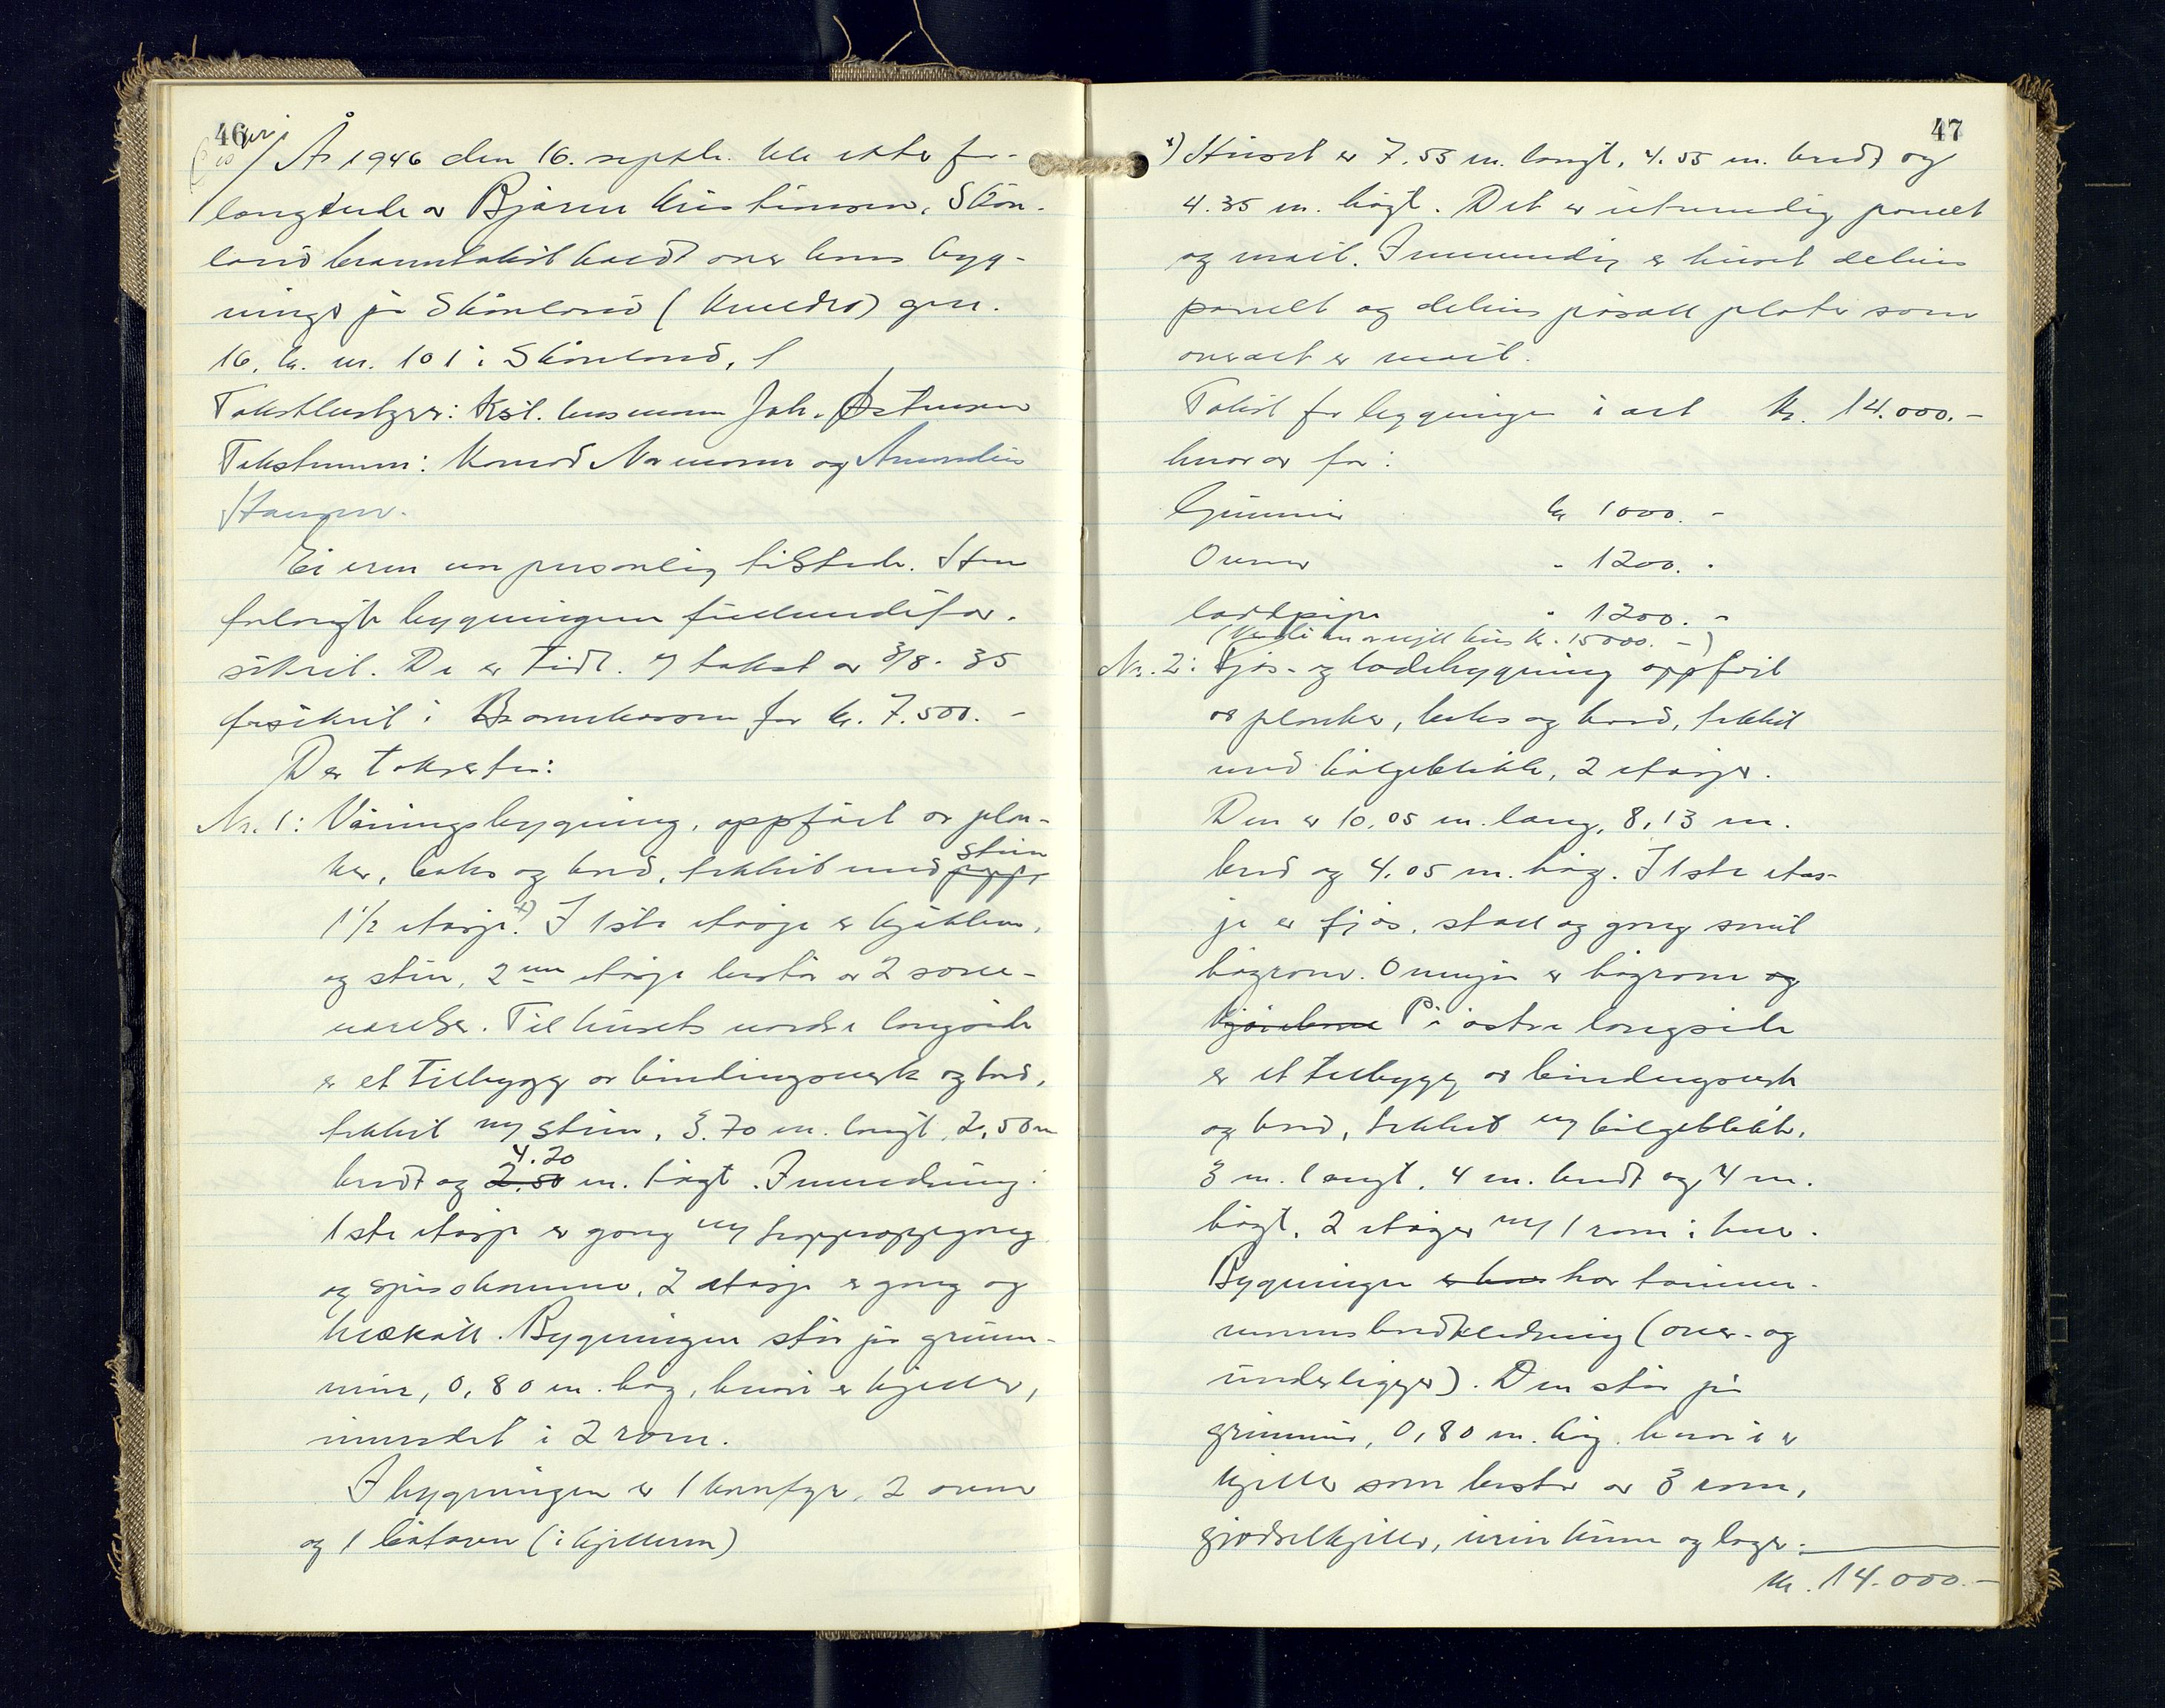 46
År 1946 den 16. septbr. ble etter for-
langende av Bjarne Kristiansen, Skån-
land branntakst holdt over hans byg-
ninger på Skånland ( ) gnr.
16, br. nr. 101 i Skånland,
Takstbestyrer: Kst. lensmann Joh. Østensen
Takstmenn: Konrad Normann og Amandus
Hansen.
Eieren var personlig tilstede. Han
forlangte bygningene fullverdifor-
sikret. De er tidl. m/ takst av 3/8-35
forsikret i Brannkassen for kr. 7.500.-
Der takseres:
Nr. 1: Våningsbygning, oppført av plan-
ker, laks og bord, tekket med papp, stein
1 1/2 etasje. x) I 1ste etasje er kjøkken,
og stue, 2nen etasje består av 2 sove-
værelser. Til husets nordre langside
er et tilbygg av bindingsverk og bord,
tekket m/ stein, 3.70 m. langt, 2,50 m
bredt og 2.50 4.20 m. høgt. Innredning:
1ste etasje er gang m/ trappeoppgang
og spiskammer, 2 etasje er gang og
kleskott. Bygningen står på grunn-
mur, 0,80 m. høg, hvori er kjeller,
innredet i 2 rom.
I bygningen er 1 komfyr, 2 ovner
og 1 (i kjelleren)
47
x) Huset er 7.55 m. langt, 4.55 m. bredt og
4.35 m. høgt. Det er utvendig panelt
og malt. Innvendig er huset delvis
panelt og delvis påsatt plater som
overalt er malt.
Takst for bygningen i alt kr. 14.000.-
hvorav for:
Grunnmur kr 1000.-
Ovner - 1200.-
loddpipe - 1200.-
(Verdi av nytt hus kr. 15000.-)
Nr. 2: Fjøs- og ladebygning oppført
av planker, laks og bord, tekket
med bølgeblikk, 2 etasjer.
Den er 10,05 m. lang, 8,13 m.
bred og 4,05 m. høg. I 1ste etas-
je er fjøs, stall og gang samt
høyrom. Ovenpå er høyrom og
kjørebru På østre langside
er et tilbygg av bindingsverk
og bord, tekket m/ bølgeblikk,
3 m. langt, 4 m. bredt og 4 m.
høgt, 2 etasjer m/ 1 rom i hver.
Bygningen er har tømmer-
mannsbordkledning (over- og
underligger). Den står på
grunnmur, 0,80 m. høg, hvori er
kjeller som består av 3 rom,
gjødselkjeller, urinkum og lager.
kr. 14.000.-